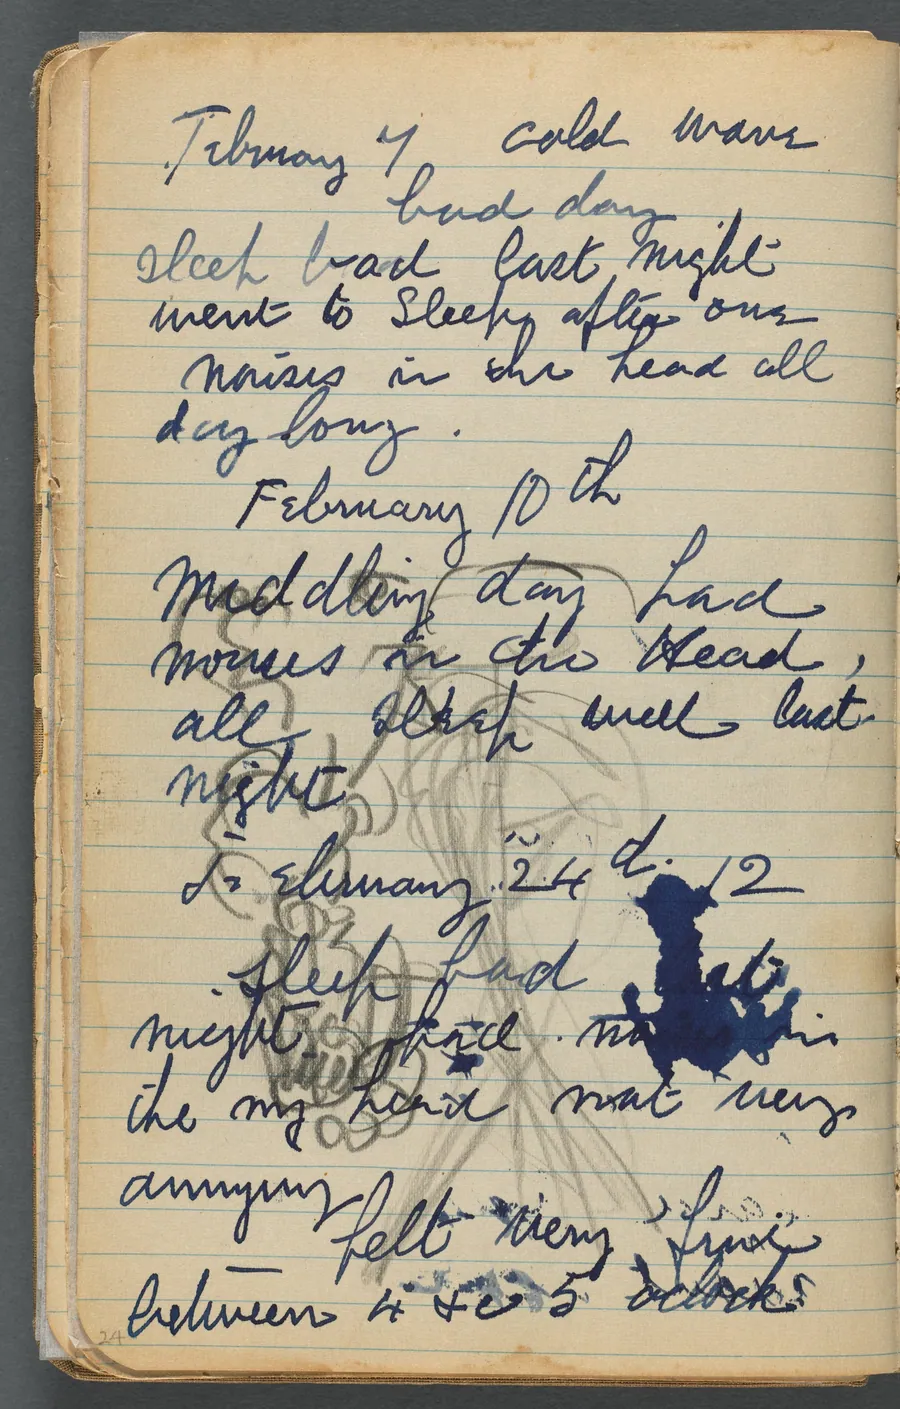 February 7 cold wave
bad day
Sleep bad last night
went to Sleep after one
noises in the head all
day long.
February 10th
Middling day had
noises in the Head,
all Sleep well last
night
February 24 d. 12
Sleep bad
night had in
the my head not very
annying
felt very fine
between 4 to 5 oclock
24